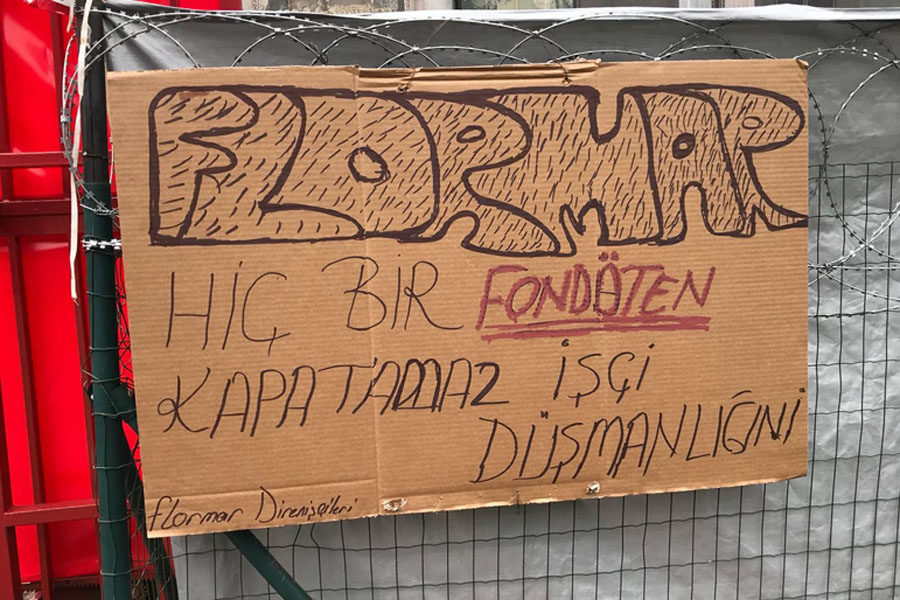 FLORMAR
HİÇ BİR FONDÖTEN
KAPATAMAZ İŞÇİ
DÜŞMANLIĞINI
flormar Direnişçileri